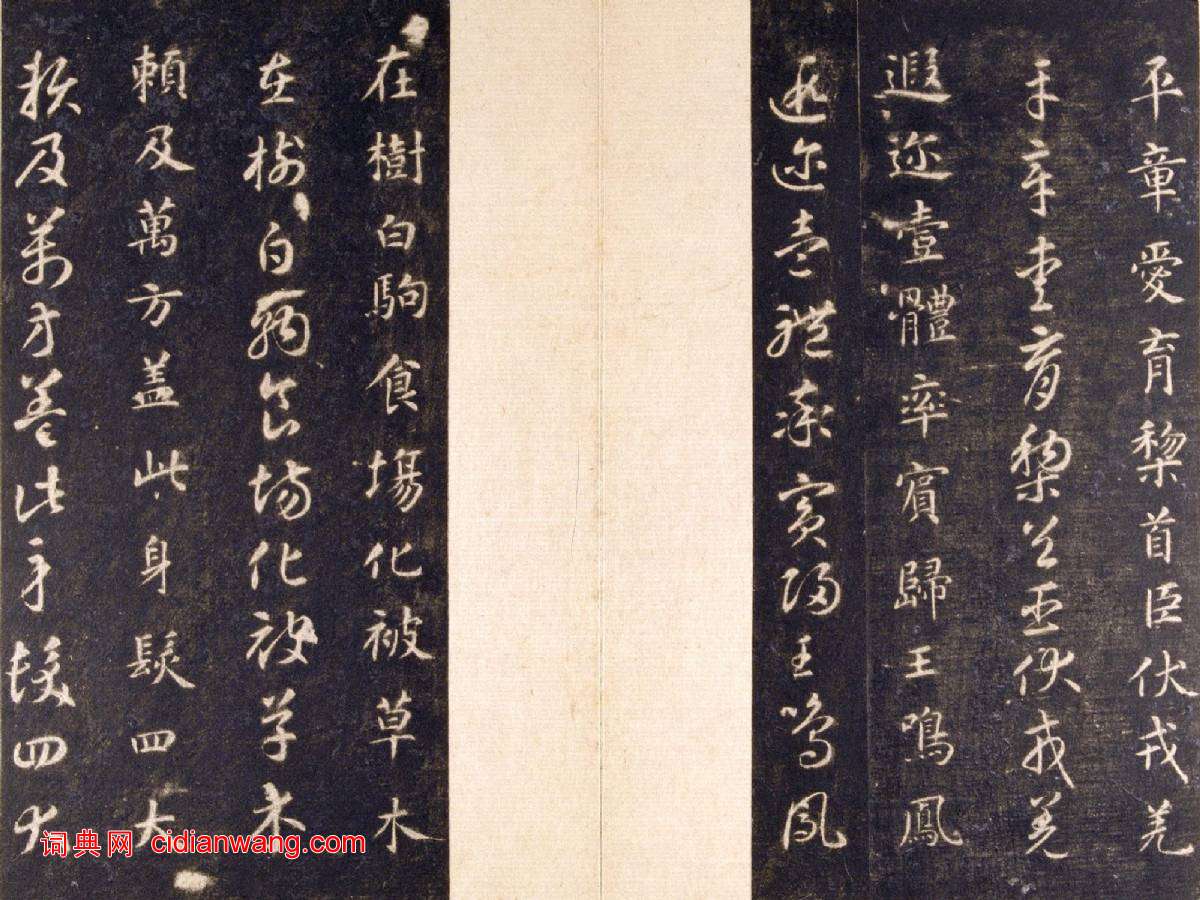 平章愛育黎首臣伏戎羌
平章愛育黎首臣伏戎羌
遐迩壹體率賓歸王鳴鳳
遐迩壹體率賓歸王鳴鳳
在樹白駒食塲化被草木
在樹白駒食場化被草木
賴及萬方盖此身髮四大
賴及萬方蓋此身髮四大
词典网 cidianwang.com